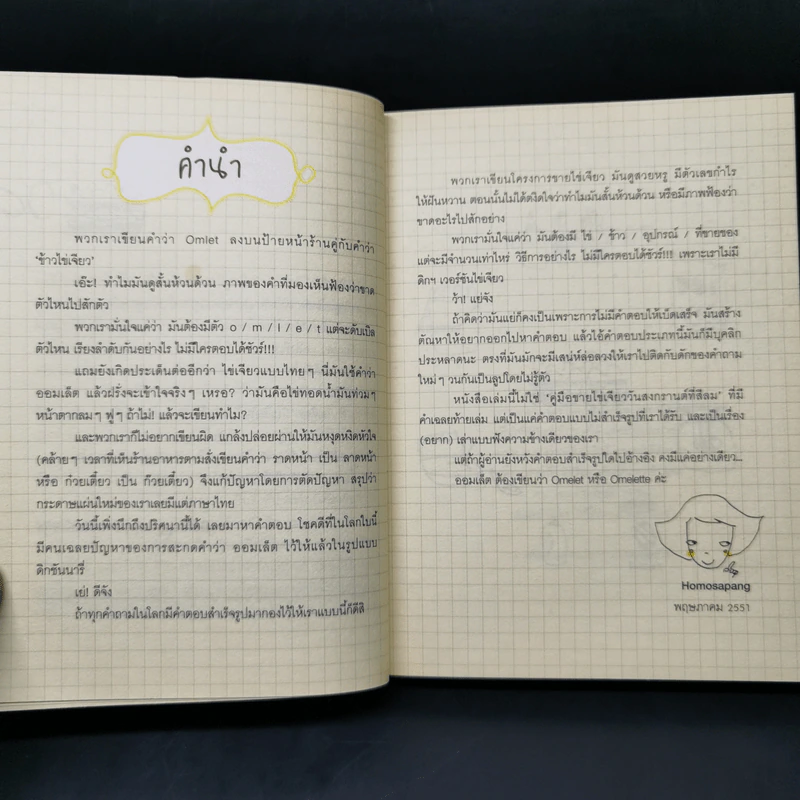 คำนำ
พวกเราเขียนคำว่า Omlet ลงบนป้ายหน้าร้านคู่กับคำว่า
"ข้าวไข่เจียว"
เอ๊ะ! ทำไมมันดูสั้นห้วนด้วน ภาพของคำที่มองเห็นฟ้องว่าขาด
ตัวไหนไปสักตัว
พวกเรามั่นใจแค่ว่า มันต้องมีตัว o / m / l / e / t แต่จะดับเบิล
ตัวไหน เรียงลำดับกันอย่างไร ไม่มีใครตอบได้ชัวร์!!!
แถมยังเกิดประเด็นต่ออีกว่า ไข่เจียวแบบไทยๆ นี่มันใช้คำว่า
ออมเล็ต แล้วฝรั่งจะเข้าใจจริงๆ เหรอ? ว่ามันคือไข่ทอดน้ำมันท่วมๆ
หน้าตากลมๆ ฟูๆ ถ้าไม่! แล้วจะเขียนทำไม?
และพวกเราก็ไม่อยากเขียนผิด แกล้งปล่อยผ่านให้มันหงุดหงิดหัวใจ
(คล้ายๆ เวลาที่เห็นร้านอาหารตามสั่งเขียนคำว่า ราดหน้า เป็น ลาดหน้า
หรือ ก๋วยเตี๋ยว เป็น ก๊วยเตี๋ยว) จึงแก้ปัญหาโดยการตัดปัญหา สรุปว่า
กระดาษแผ่นใหม่ของเราเลยมีแต่ภาษาไทย
วันนี้เพิ่งนึกถึงปริศนานี้ได้ เลยมาหาคำตอบ โชคดีที่ในโลกใบนี้
มีคนเฉลยปัญหาของการสะกดคำว่า ออมเล็ต ไว้ให้แล้วในรูปแบบ
ดิกชันนารี
เย่! ดีจัง
ถ้าทุกคำถามในโลกมีคำตอบสำเร็จรูปมากองไว้ให้เราแบบนี้ก็ดีสิ
พวกเราเขียนโครงการขายไข่เจียว มันดูสวยหรู มีตัวเลขกำไร
ให้ฝันหวาน ตอนนั้นไม่ได้ตงิดใจว่าทำไมมันสั้นห้วนด้วน หรือมีภาพฟ้องว่า
ขาดอะไรไปสักอย่าง
พวกเรามั่นใจแค่ว่า มันต้องมี ไข่ / ข้าว / อุปกรณ์ / ที่ขายของ
แต่จะมีจำนวนเท่าไหร่ วิธีการอย่างไร ไม่มีใครตอบได้ชัวร์!!! เพราะเราไม่มี
ดิกฯ เวอร์ชันไข่เจียว
ว้า! แย่จัง
ถ้าคิดว่ามันแย่ก็คงเป็นเพราะการไม่มีคำตอบให้เบ็ดเสร็จ มันสร้าง
ตัณหาให้อยากออกไปหาคำตอบ แล้วไอ้คำตอบประเภทนี้มันก็มีบุคลิก
ประหลาดนะ ตรงที่มันมักจะมีเสน่ห์ล่อลวงให้เราไปติดกับดักของคำถาม
ใหม่ๆ วนกันเป็นลูปโดยไม่รู้ตัว
หนังสือเล่มนี้ไม่ใช่ "คู่มือขายไข่เจียววันสงกรานต์ที่สีลม" ที่มี
คำเฉลยท้ายเล่ม แต่เป็นแค่คำตอบแบบไม่สำเร็จรูปที่เราได้รับ และเป็นเรื่อง
(อยาก) เล่าแบบฟังความข้างเดียวของเรา
แต่ถ้าผู้อ่านยังหวังคำตอบสำเร็จรูปใดไปอ้างอิง คงมีแค่อย่างเดียว...
ออมเล็ต ต้องเขียนว่า Omelet หรือ Omelette ค่ะ
Homosapang
พฤษภาคม 2551